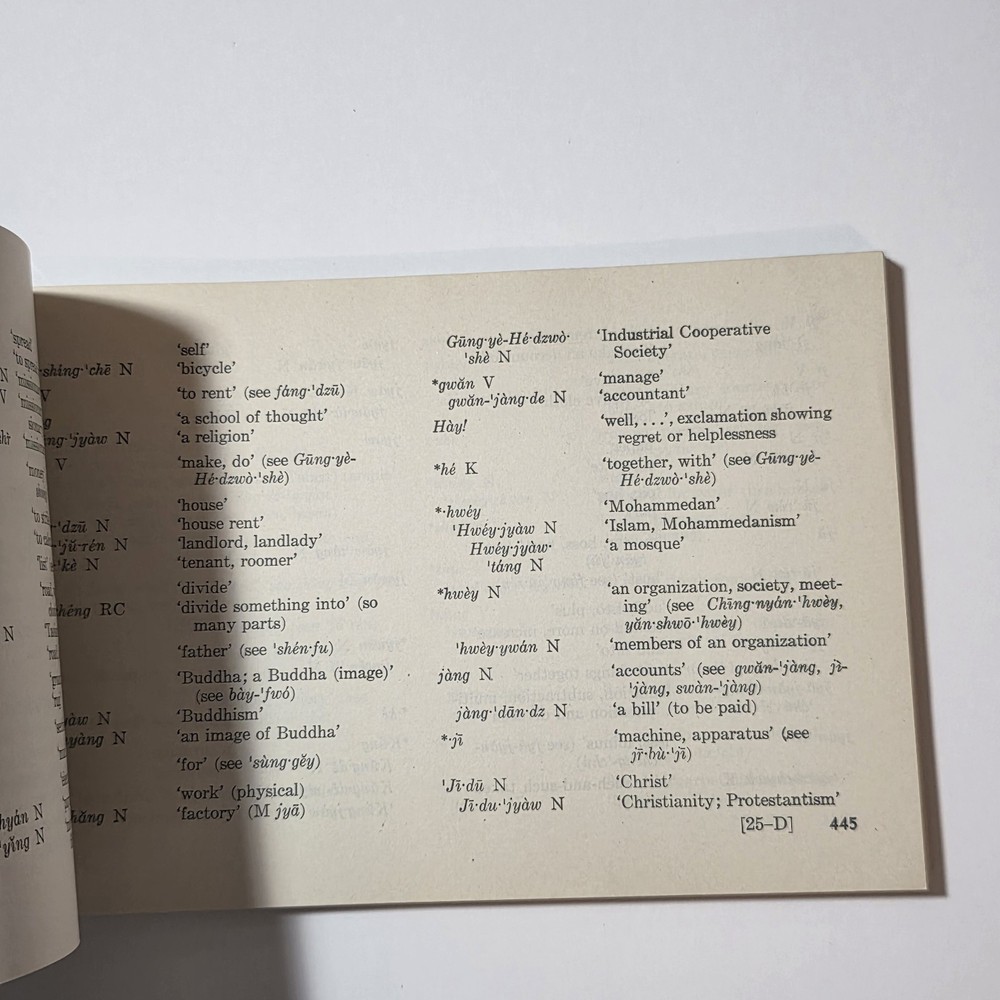 'self'
shíng·'chē N 'bicycle'
V 'to rent' (see fáng·'dzū)
'a school of thought'
'jyàw N 'a religion'
V 'make, do' (see Gūng·yè-
Hé·dzwò·'shè)
'house'
'dzū N 'house rent'
'jǔ·rén N 'landlord, landlady'
'kè N 'tenant, roomer'
'divide'
chéng RC 'divide something into' (so
many parts)
'father' (see 'shén·fu)
'Buddha; a Buddha (image)'
(see bày-'fwó)
N 'Buddhism'
N 'an image of Buddha'
'for' (see 'sùng·gěy)
'work' (physical)
N 'factory' (M jyā)
Gūng·yè-Hé·dzwò· 'Industrial Cooperative
'shè N Society'
*gwǎn V 'manage'
gwǎn-'jàng·de N 'accountant'
Hày! 'well, . . .', exclamation showing
regret or helplessness
*hé K 'together, with' (see Gūng·yè-
Hé·dzwò·'shè)
*·hwéy 'Mohammedan'
'Hwéy·jyàw N 'Islam, Mohammedanism'
Hwéy·jyàw· 'a mosque'
'táng N
*hwèy N 'an organization, society, meet-
ing' (see Chīng·nyán·'hwèy,
yǎn·shwō·'hwèy)
'hwèy·ywán N 'members of an organization'
jàng N 'accounts' (see gwǎn-'jàng, jì-
'jàng, swàn-'jàng)
jàng·'dān·dz N 'a bill' (to be paid)
*·jī 'machine, apparatus' (see
jr̄·bù·'jī)
'Jī·dū N 'Christ'
Jī·du·'jyàw N 'Christianity; Protestantism'
[25–D] 445